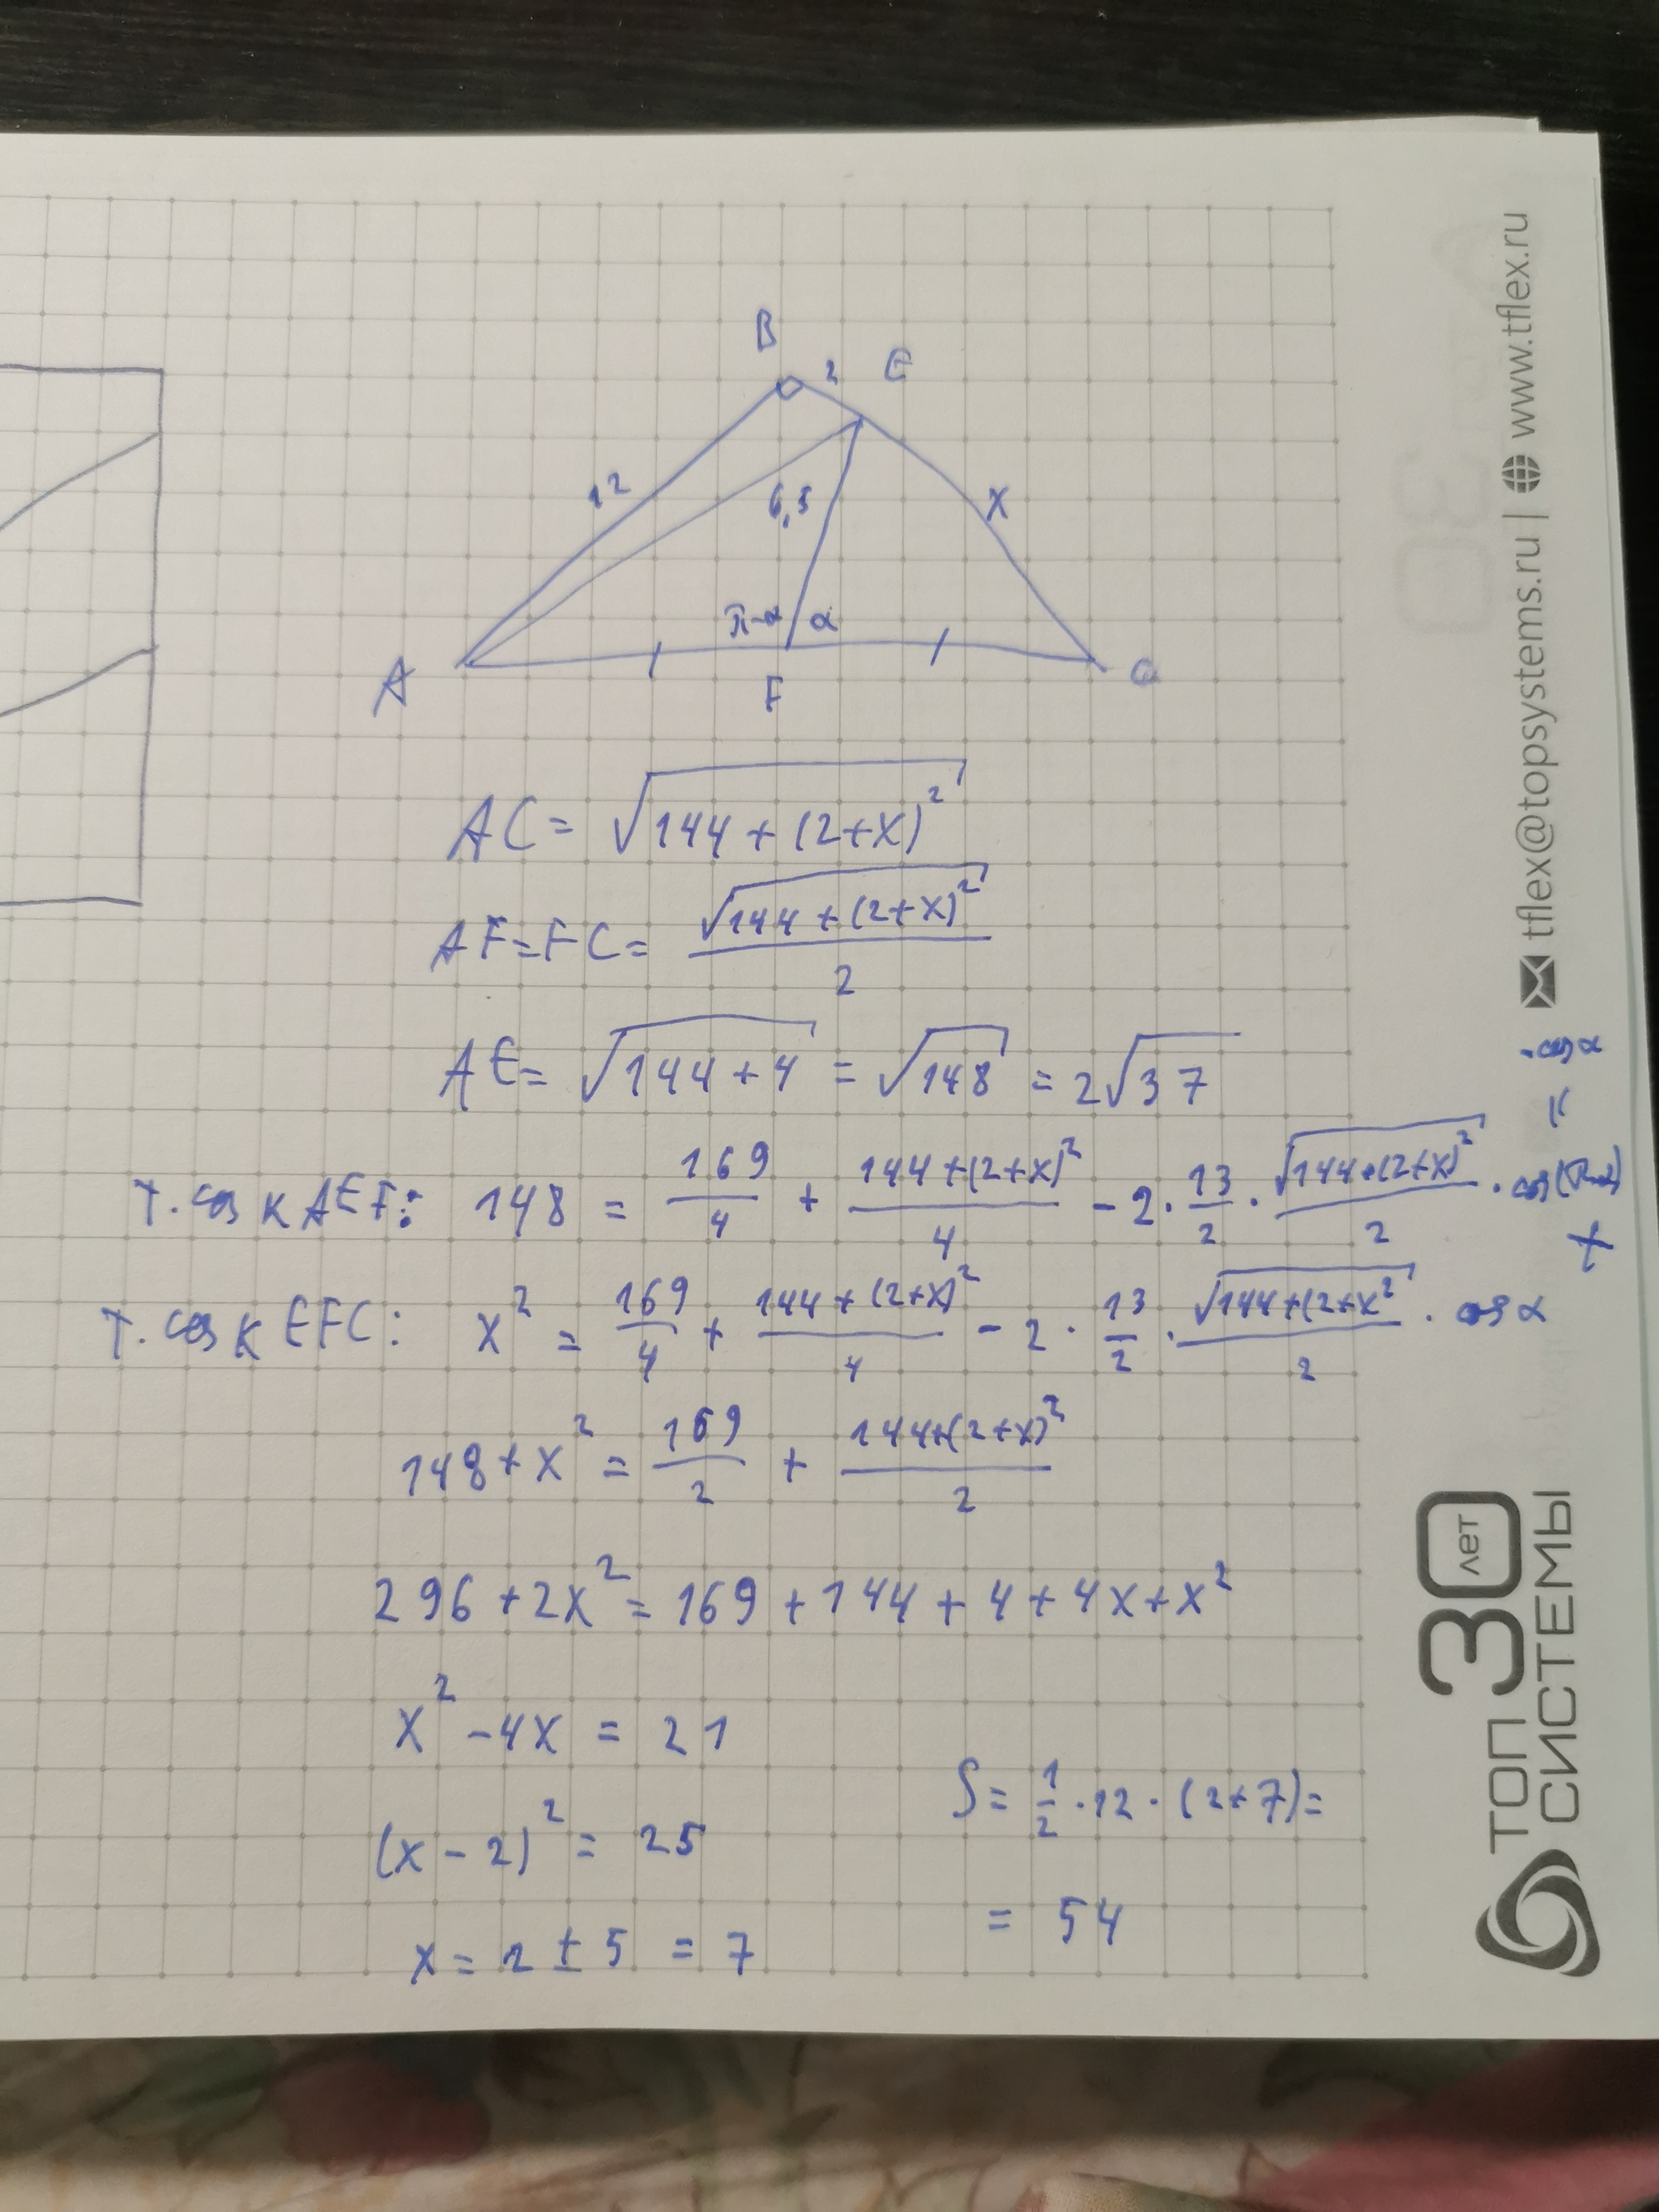 B 2 E
12
6,5
X
π-α α
A F C
AC = √(144 + (2+X)²)
AF = FC = √(144 + (2+X)²) / 2
AE = √(144 + 4) = √148 = 2√37
Т. cos к AEF: 148 = 169/4 + (144 + (2+X)²)/4 - 2 · 13/2 · √(144+(2+X)²)/2 · cos(π-α)
= · cos α
+
Т. cos к EFC: X² = 169/4 + (144 + (2+X)²)/4 - 2 · 13/2 · √(144+(2+X²)/2 · cos α
148 + X² = 169/2 + (144+(2+X)²)/2
296 + 2X² = 169 + 144 + 4 + 4X + X²
X² - 4X = 21
(X - 2)² = 25
X = 2 ± 5 = 7
S = 1/2 · 12 · (2+7) =
= 54
ТОП СИСТЕМЫ
30 лет
tflex@topsystems.ru | www.tflex.ru